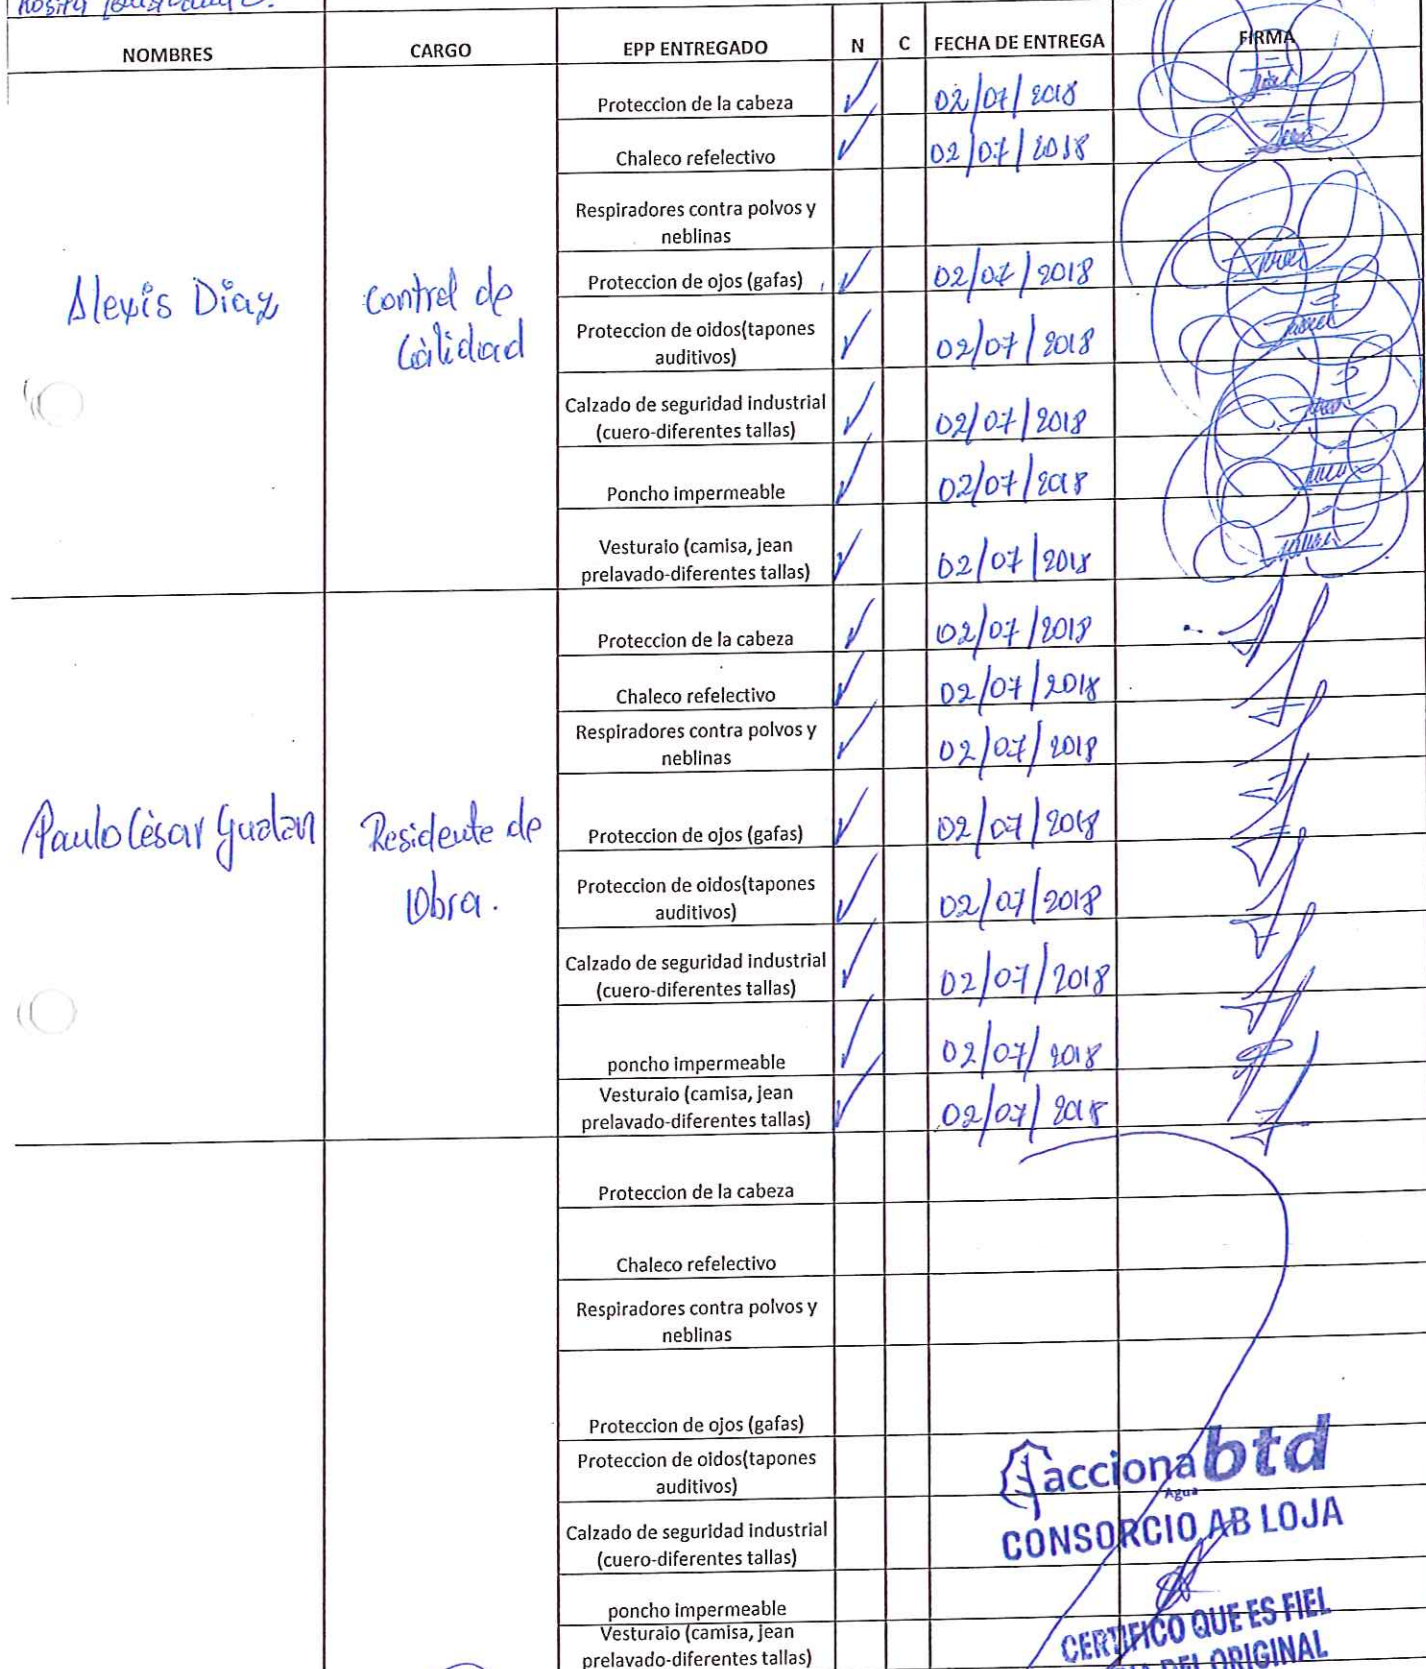 NOMBRES CARGO EPP ENTREGADO N C FECHA DE ENTREGA FIRMA
Alexis Diaz
Control de
Càlidad
Proteccion de la cabeza ✓ 02/07/2018
Chaleco refelectivo ✓ 02/07/2018
Respiradores contra polvos y
neblinas
Proteccion de ojos (gafas) ✓ 02/07/2018
Proteccion de oidos(tapones
auditivos) ✓ 02/07/2018
Calzado de seguridad industrial
(cuero-diferentes tallas) ✓ 02/07/2018
Poncho impermeable ✓ 02/07/2018
Vesturaio (camisa, jean
prelavado-diferentes tallas) ✓ 02/07/2018
Paulo Cèsar Gualan
Residente de
Obra.
Proteccion de la cabeza ✓ 02/07/2018
Chaleco refelectivo ✓ 02/07/2018
Respiradores contra polvos y
neblinas ✓ 02/07/2018
Proteccion de ojos (gafas) ✓ 02/07/2018
Proteccion de oidos(tapones
auditivos) ✓ 02/07/2018
Calzado de seguridad industrial
(cuero-diferentes tallas) ✓ 02/07/2018
poncho impermeable ✓ 02/07/2018
Vesturaio (camisa, jean
prelavado-diferentes tallas) ✓ 02/07/2018
Proteccion de la cabeza
Chaleco refelectivo
Respiradores contra polvos y
neblinas
Proteccion de ojos (gafas)
Proteccion de oidos(tapones
auditivos)
Calzado de seguridad industrial
(cuero-diferentes tallas)
poncho impermeable
Vesturaio (camisa, jean
prelavado-diferentes tallas)
acciona btd
Agua
CONSORCIO AB LOJA
CERTIFICO QUE ES FIEL
DEL ORIGINAL